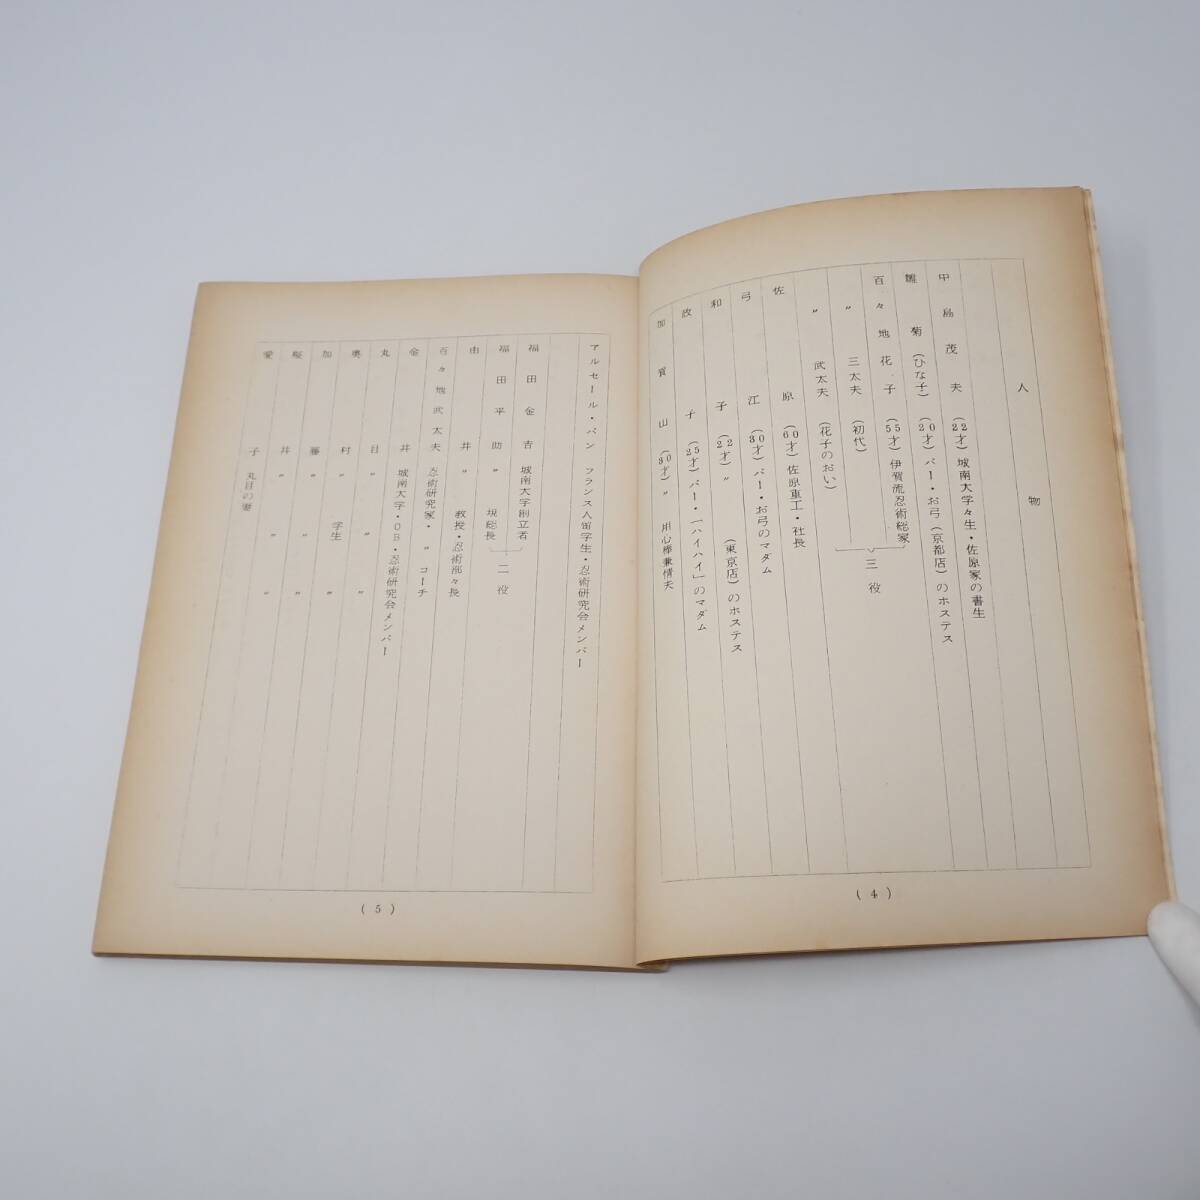 人物
中島茂夫 (22才) 城南大学々生・佐原家の書生
雛菊 (ひな子) (20才) バー・お弓 (京都店) のホステス
百々地花子 (55才) 伊賀流忍術総家
〃 三太夫 (初代)
三役
〃 武太夫 (花子のおい)
佐原 (60才) 佐原重工・社長
弓江 (30才) バー・お弓のマダム
和子 (22才) 〃 (東京店) のホステス
政子 (25才) バー・「ハイハイ」のマダム
加賀山 (30才) 〃 用心棒兼情夫
(4)
アルセール・パン フランス人留学生・忍術研究会メンバー
福田金吉 城南大学創立者
福田平助 〃 現総長
二役
由井 〃 教授・忍術部々長
百々地武太夫 忍術研究家・〃 コーチ
金井 城南大学・OB・忍術研究会メンバー
丸目 〃 〃 〃
奥村 〃 学生 〃
加藤 〃 〃 〃
桜井 〃 〃 〃
愛子 丸目の妻
(5)